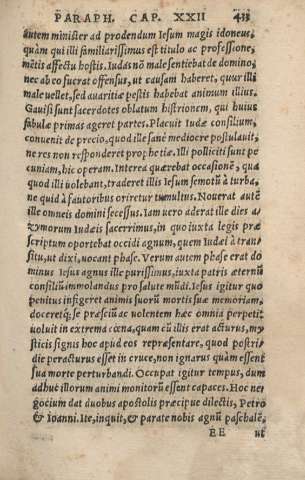 PARAPH. CAP. XXII 433
autem minister ad prodendum Iesum magis idoneus,
quàm qui illi familiarissimus est titulo ac professione,
mẽtis affectu hostis. Iudas nõ male sentiebat de domino,
nec ab eo fuerat offensus, ut causam haberet, quur illi
male uellet, sed auaritiæ pestis habebat animum illius.
Gauisi sunt sacerdotes oblatum histrionem, qui huius
fabulæ primas ageret partes. Placuit Iudæ consilium,
conuenit de precio, quod ille sanè mediocre postulauit,
ne res non responderet prophetiæ. Illi polliciti sunt pe
cuniam, hic operam. Interea quærebat occasionẽ, qua
quod illi uolebant, traderet illis Iesum semotũ à turba,
ne quid à fautoribus oriretur tumultus. Nouerat autẽ
ille omneis domini secessus. Iam uero aderat ille dies a-
zymorum Iudæis sacerrimus, in quo iuxta legis præ
scriptum oportebat occidi agnum, quem Iudæi à tran-
situ, ut dixi, uocant phase. Verum autem phase erat do
minus Iesus agnus ille purissimus, iuxta patris æternũ
consiliũ immolandus pro salute mũdi. Iesus igitur quo
penitus infigeret animis suorũ mortis suæ memoriam,
doceretq́; se præsciũ ac uolentem hæc omnia perpeti,
uoluit in extrema cœna, quam cũ illis erat acturus, my
sticis signis hoc apud eos repræsentare, quod postri-
die peracturus esset in cruce, non ignarus quàm essent
sua morte perturbandi. Occupat igitur tempus, dum
adhuc illorum animi monitorũ essent capaces. Hoc ne-
gocium dat duobus apostolis præcipue dilectis, Petro
& Ioanni. Ite, inquit, & parate nobis agnũ paschalẽ,
EE ut